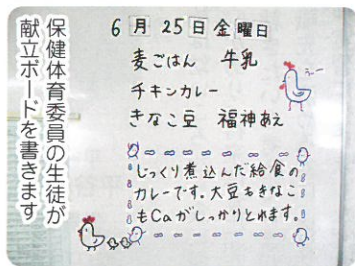 保健体育委員の生徒が
献立ボードを書きます
6月25日金曜日
麦ごはん 牛乳
チキンカレー
きなこ豆 福神あえ
じっくり煮込んだ給食の
カレーです。大豆もきなこ
もCaがしっかりとれます。